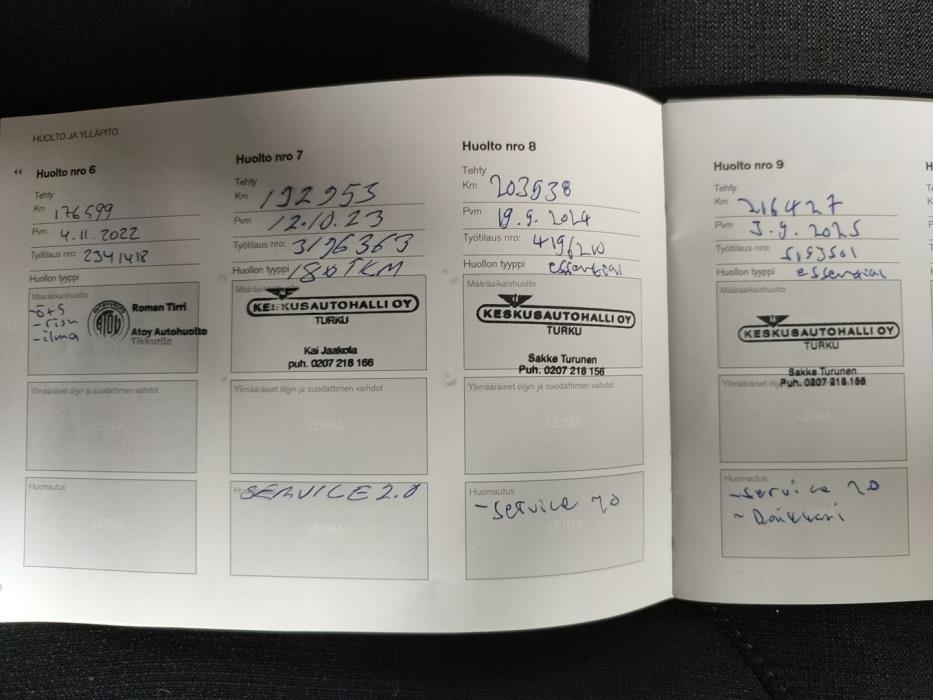 HUOLTO JA YLLÄPITO
Huolto nro 6
Tehty
Km 176599
Pvm 4.11.2022
Työtilaus nro: 2341418
Huollon tyyppi
Määräaikaishuolto
-ö+s
-risu
-ilma
ATOY
Roman Tirri
Atoy Autohuolto
Tikkurila
Ylimääräiset öljyn ja suodattimen vaihdot
LEIMA
Huomautus
LEIMA
Huolto nro 7
Tehty
Km 192953
Pvm 12.10.23
Työtilaus nro: 3196363
Huollon tyyppi 180TKM
Määräaikaishuolto
KESKUSAUTOHALLI OY
TURKU
Kai Jaakola
puh. 0207 218 166
Ylimääräiset öljyn ja suodattimen vaihdot
LEIMA
SERVICE 2.0
LEIMA
Huolto nro 8
Tehty
Km 203938
Pvm 19.9.2024
Työtilaus nro: 4196210
Huollon tyyppi essential
Määräaikaishuolto
KESKUSAUTOHALLI OY
TURKU
Sakke Turunen
Puh. 0207 218 156
Ylimääräiset öljyn ja suodattimen vaihdot
LEIMA
Huomautus
-service 20
LEIMA
Huolto nro 9
Tehty
Km 216427
Pvm 3.9.2025
Työtilaus nro: 5193501
Huollon tyyppi essential
Määräaikaishuolto
KESKUSAUTOHALLI OY
TURKU
Sakke Turunen
Puh. 0207 218 156
Ylimääräiset
LEIMA
Huomautus
-service 20
LEIMA